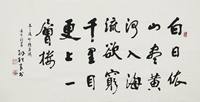 白日依
山尽黄
河入海
流欲穷
千里目
更上一
层楼